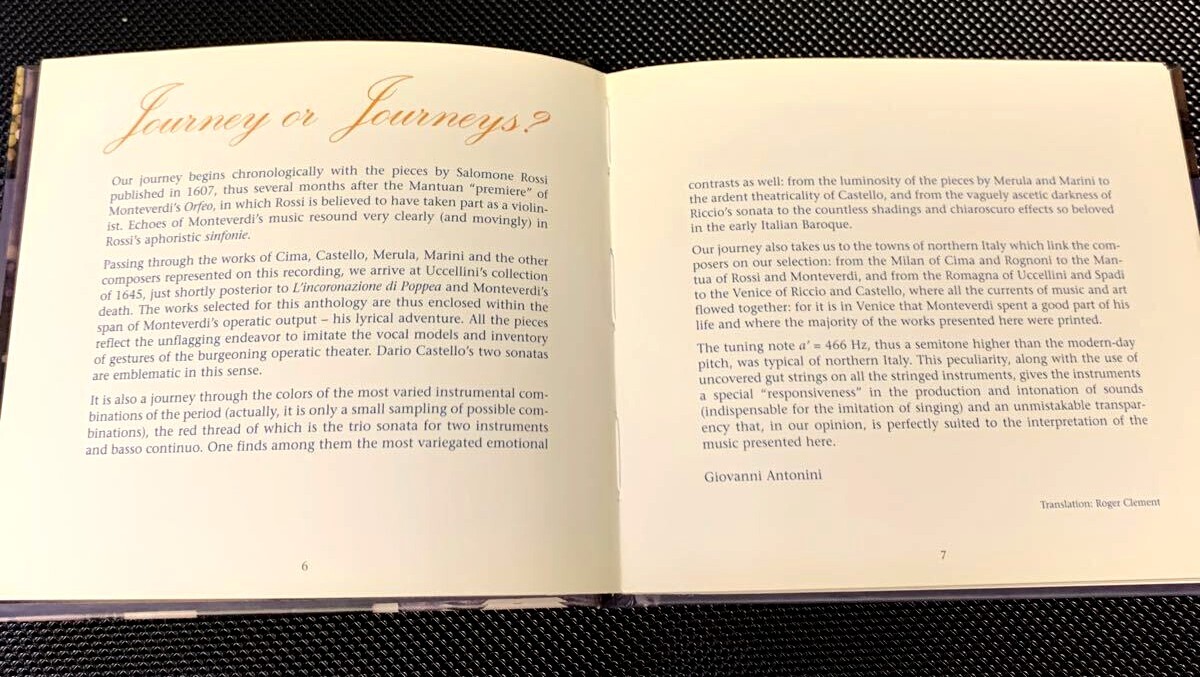 Journey or Journeys?
Our journey begins chronologically with the pieces by Salomone Rossi
published in 1607, thus several months after the Mantuan “premiere” of
Monteverdi’s Orfeo, in which Rossi is believed to have taken part as a violin-
ist. Echoes of Monteverdi’s music resound very clearly (and movingly) in
Rossi’s aphoristic sinfonie.
Passing through the works of Cima, Castello, Merula, Marini and the other
composers represented on this recording, we arrive at Uccellini’s collection
of 1645, just shortly posterior to L’incoronazione di Poppea and Monteverdi’s
death. The works selected for this anthology are thus enclosed within the
span of Monteverdi’s operatic output – his lyrical adventure. All the pieces
reflect the unflagging endeavor to imitate the vocal models and inventory
of gestures of the burgeoning operatic theater. Dario Castello’s two sonatas
are emblematic in this sense.
It is also a journey through the colors of the most varied instrumental com-
binations of the period (actually, it is only a small sampling of possible com-
binations), the red thread of which is the trio sonata for two instruments
and basso continuo. One finds among them the most variegated emotional
6
contrasts as well: from the luminosity of the pieces by Merula and Marini to
the ardent theatricality of Castello, and from the vaguely ascetic darkness of
Riccio’s sonata to the countless shadings and chiaroscuro effects so beloved
in the early Italian Baroque.
Our journey also takes us to the towns of northern Italy which link the com-
posers on our selection: from the Milan of Cima and Rognoni to the Man-
tua of Rossi and Monteverdi, and from the Romagna of Uccellini and Spadi
to the Venice of Riccio and Castello, where all the currents of music and art
flowed together: for it is in Venice that Monteverdi spent a good part of his
life and where the majority of the works presented here were printed.
The tuning note a’ = 466 Hz, thus a semitone higher than the modern-day
pitch, was typical of northern Italy. This peculiarity, along with the use of
uncovered gut strings on all the stringed instruments, gives the instruments
a special “responsiveness” in the production and intonation of sounds
(indispensable for the imitation of singing) and an unmistakable transpar-
ency that, in our opinion, is perfectly suited to the interpretation of the
music presented here.
Giovanni Antonini
Translation: Roger Clement
7